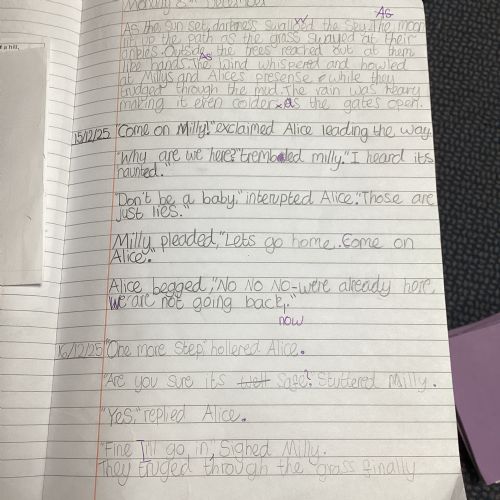 Monday 8th December
As
As the sun set, darkness swallowed the sky. The moon
lit up the path as the grass swayed at their
ankles. Outside the trees reached out at them
As
like hands. The wind whispered and howled
at Millys and Alices presense while they
trudged through the mud. The rain was heavy
making it even colder as the gates open.
15/12/25 "Come on Milly!" exclaimed Alice leading the way.
"Why are we here?" trembled milly. "I heard its
haunted."
"Don't be a baby." interupted Alice. "Those are
just lies."
Milly pleaded, "Lets go home. Come on
Alice."
Alice begged, "No No No-were already here,
we are not going back."
now
16/12/25 "One more step," hollered Alice.
"Are you sure its safe? Stuttered Milly.
"Yes," replied Alice.
"Fine I'll go in," Sighed Milly.
They truged through the grass finally